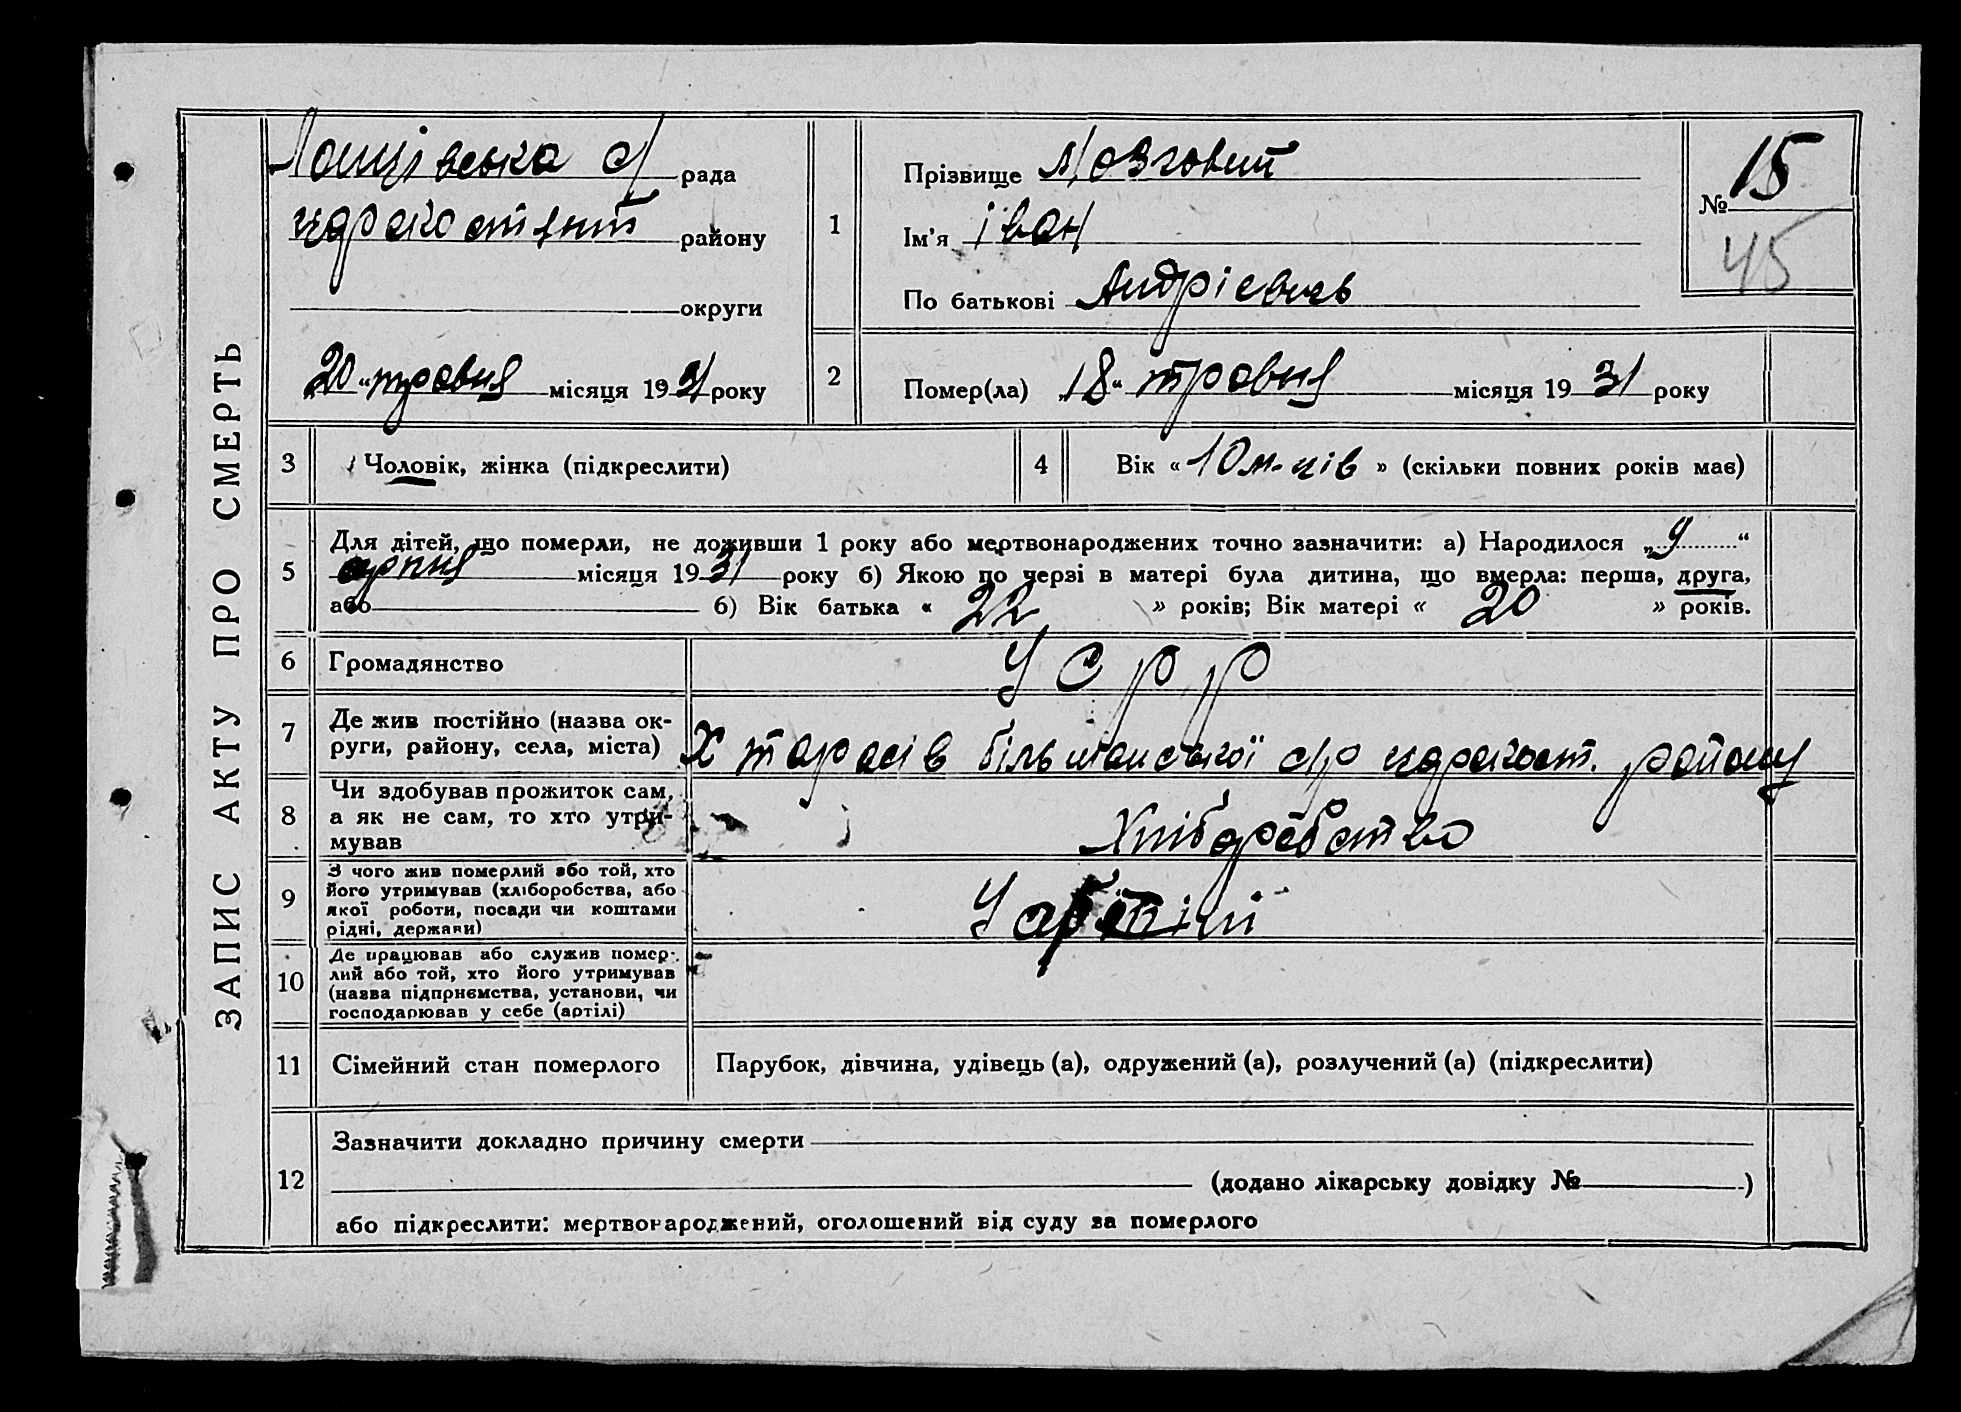 ЗАПИС АКТУ ПРО СМЕРТЬ
Лощівська с/ рада
району
округи
„20“ травня місяця 1931 року
1
Прізвище Мозговий
Ім'я Іван
По батькові Андрієвичь
№ 15
45
2
Помер(ла) „18“ травня місяця 1931 року
3
Чоловік, жінка (підкреслити)
4
Вік « 10 м-ців » (скільки повних років має)
5
Для дітей, що померли, не доживши 1 року або мертвонароджених точно зазначити: а) Народилося „9“
місяця 1931 року б) Якою по черзі в матері була дитина, що вмерла: перша, друга,
або 6) Вік батька « 22 » років; Вік матері « 20 » років.
6
Громадянство
УСРР
7
Де жив постійно (назва ок-
руги, району, села, міста)
Х Тарасів більманської с/р району
8
Чи здобував прожиток сам,
а як не сам, то хто утри-
мував
Хліборобство
9
З чого жив померлий або той, хто
його утримував (хліборобства, або
якої роботи, посади чи коштами
рідні, держави)
У артілі
10
Де працював або служив помер-
лий або той, хто його утримував
(назва підприємства, установи, чи
господарював у себе (артілі)
11
Сімейний стан померлого
Парубок, дівчина, удівець (а), одружений (а), розлучений (а) (підкреслити)
12
Зазначити докладно причину смерти
(додано лікарську довідку № )
або підкреслити: мертвонароджений, оголошений від суду за померлого